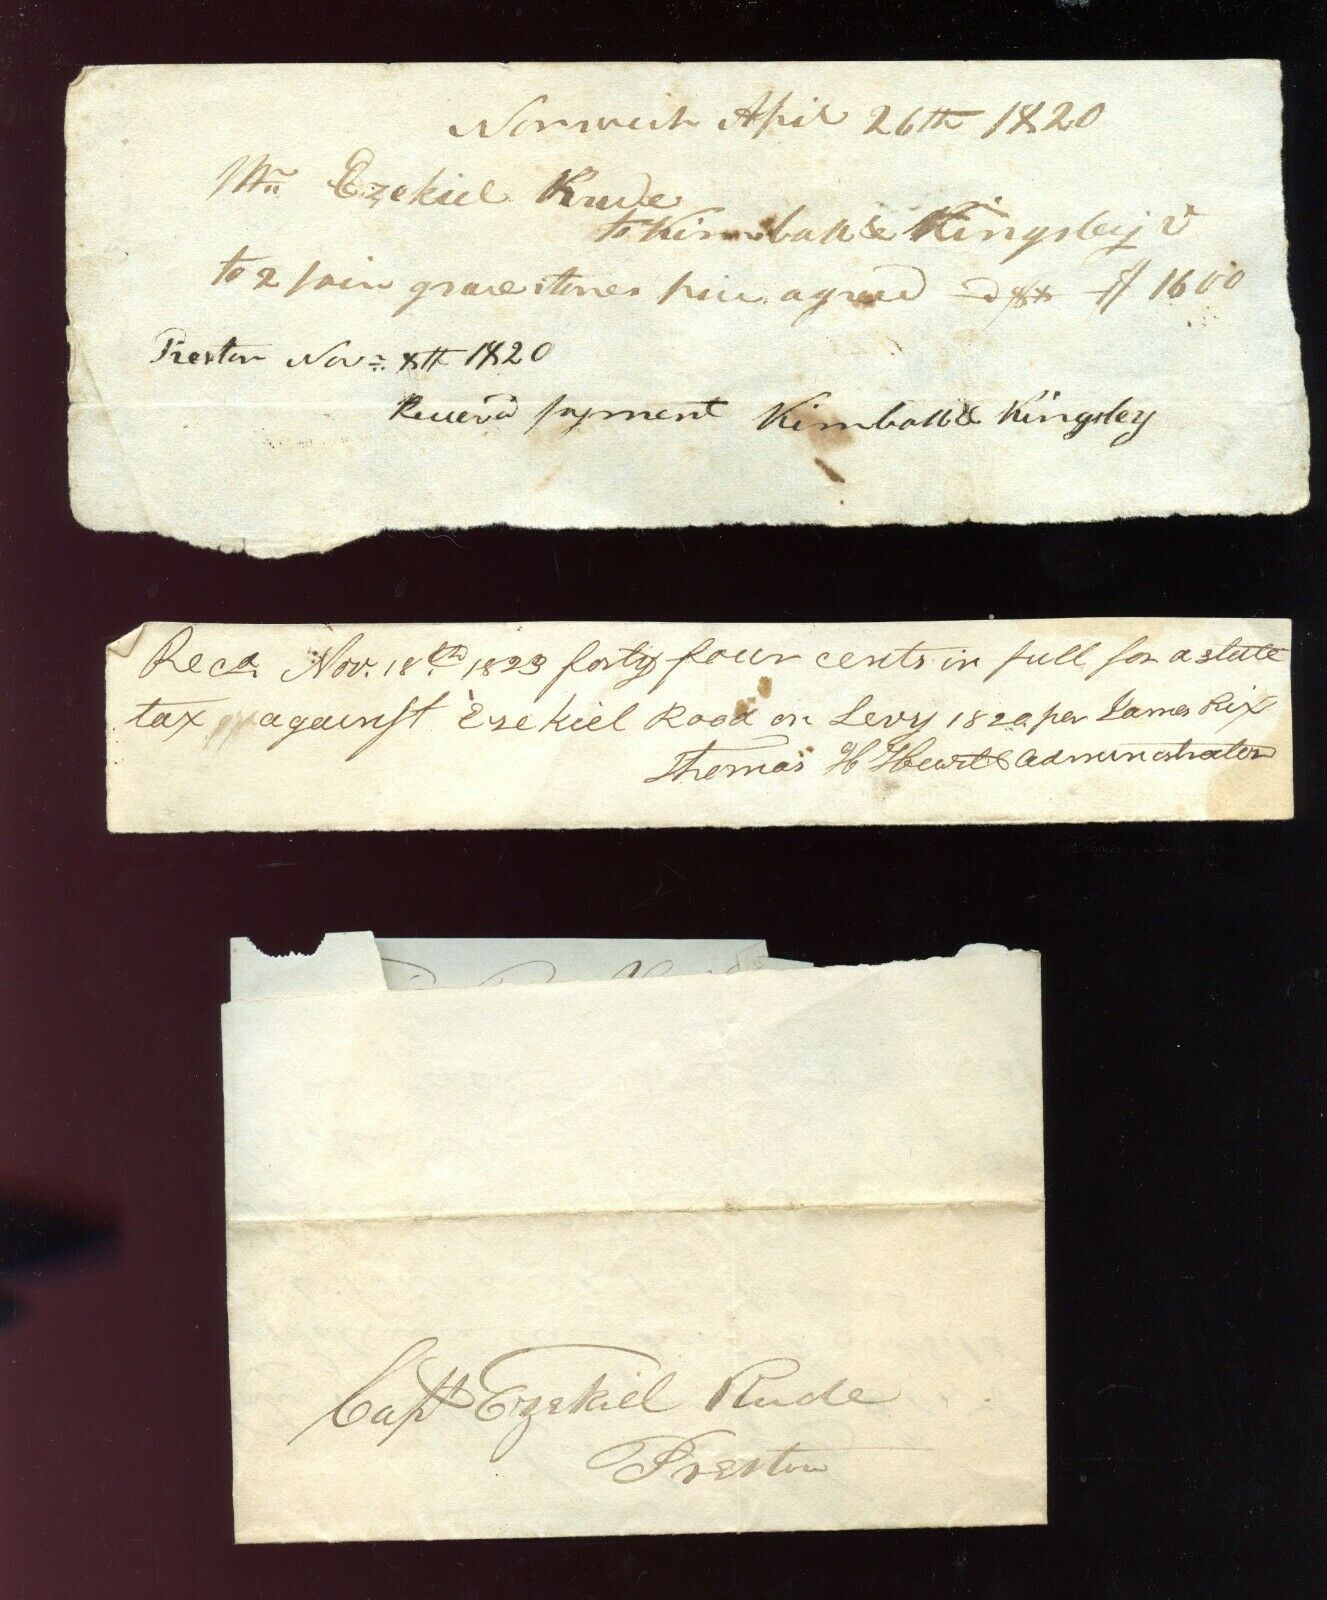 Norwich April 26th 1820
Mr Ezekiel Rude
to Kimball & Kingsley
to 2 pair grave stones price agreed $ 16 00
Preston Nov: 8th 1820
Receivd payment Kimball & Kingsley
Recd. Nov. 18th 1823 forty four cents in full for a state
tax against Ezekiel Rood on Levy 1820. per James Rix
Thomas H administrator
Capt Ezekiel Rude
Preston